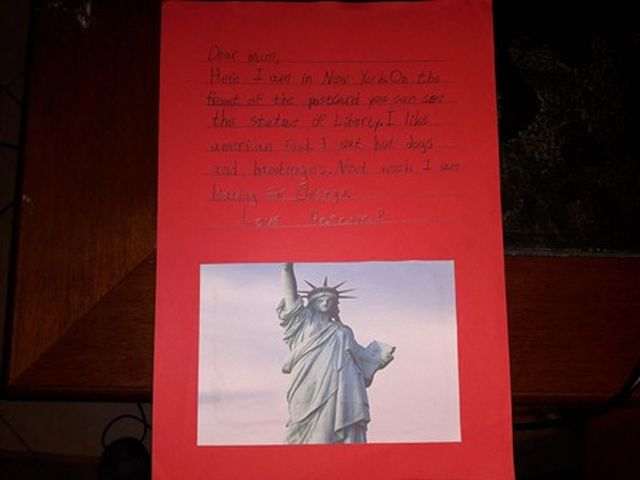 Dear mum,
Here I am in New York. On the
front of the postcard you can see
the statue of Liberty. I like
american food. I eat hot dogs
and hamburgers. Next week I am
leaving for
Love